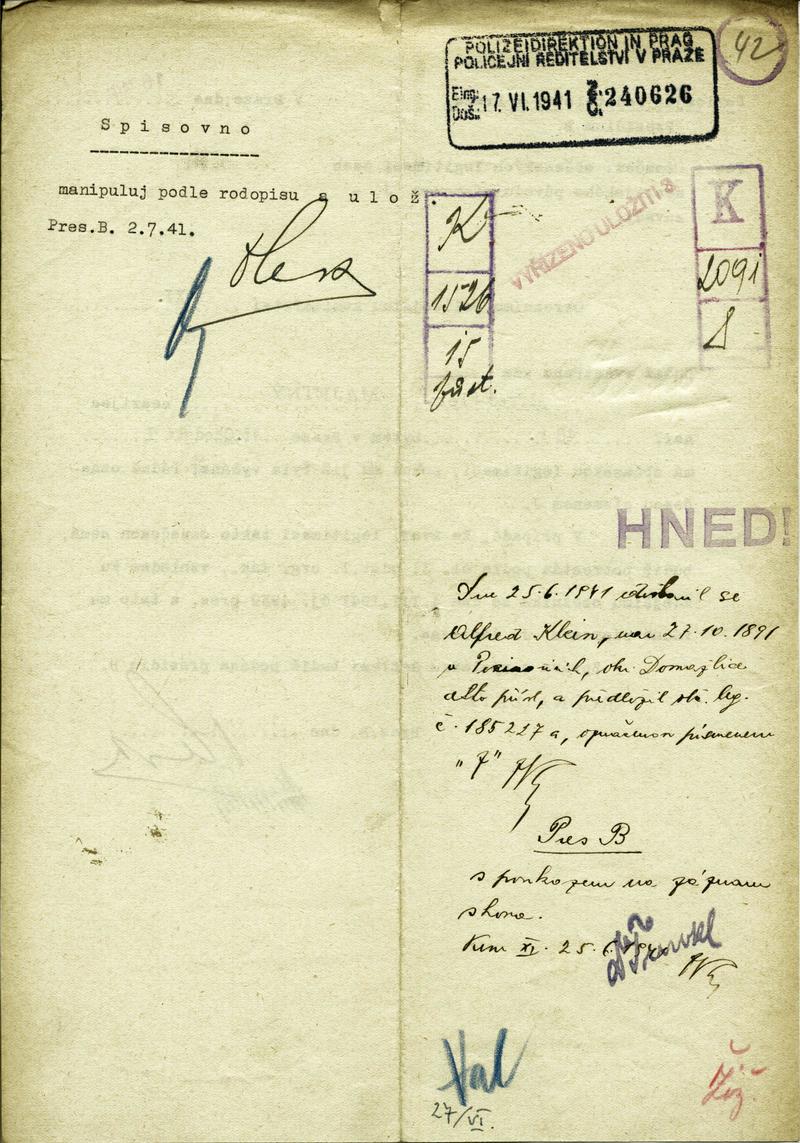 POLIZEIDIREKTION IN PRAG
POLICEJNÍ ŘEDITELSTVÍ V PRAZE
Eing.
Doš.: 17. VI. 1941 Z. Č. 240626
42
Spisovno
manipuluj podle rodopisu a ulož
Pres.B. 2.7.41.
K
1526
15
VYŘÍZENO ULOŽITI
K
2091
8
HNED!
Dne 25.6.1941 dostavil se
Alfred Klein, nar 27.10.1891
v okr. Domažlice
a předložil obč. leg.
č. 185227 a, opatřenou písmenem
"J"
Pres B
s poukazem na záznam
shora.
Krim XI. 25.6.
Val
27/VI.